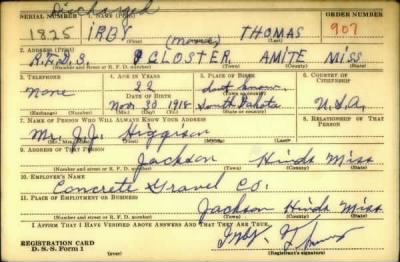 Discharged
SERIAL NUMBER 1. NAME (Print) ORDER NUMBER
1825 IRBY (None) THOMAS 907
2. ADDRESS (Print)
R.F.D.3. GLOSTER AMITE MISS
(Number and street or R. F. D. number) (Town) (County) (State)
3. TELEPHONE 4. AGE IN YEARS 5. PLACE OF BIRTH 6. COUNTRY OF CITIZENSHIP
None 22 don't know
DATE OF BIRTH (Town or county)
Nov 30 1918 South Dakota U.S.A.
(Exchange) (Number) (Mo.) (Day) (Yr.) (State or country)
7. NAME OF PERSON WHO WILL ALWAYS KNOW YOUR ADDRESS 8. RELATIONSHIP OF THAT PERSON
Mr. J.J. Higgison
9. ADDRESS OF THAT PERSON
Jackson Hinds Miss
(Number and street or R. F. D. number) (Town) (County) (State)
10. EMPLOYER'S NAME
Concrete Gravel Co.
11. PLACE OF EMPLOYMENT OR BUSINESS
Jackson Hinds Miss
(Number and street or R. F. D. number) (Town) (County) (State)
I AFFIRM THAT I HAVE VERIFIED ABOVE ANSWERS AND THAT THEY ARE TRUE.
REGISTRATION CARD
D. S. S. Form 1
(Registrant's signature)